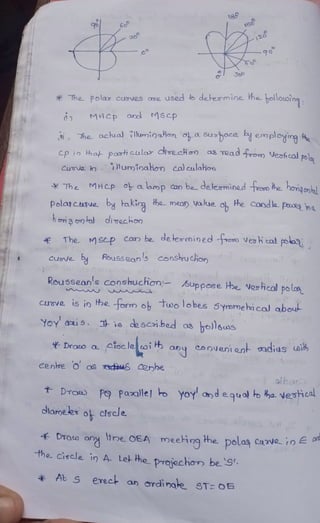 90° 60° 30° 0°
180° 150° 120° 90° 60° 30° 0°
* The polar curves are used to determine the following:
i) MHCP and MSCP
ii. The actual illumination of a surface by employing the
CP in that particular direction as read from vertical polar
curve in illumination calculations
* The MHCP of a lamp can be determined from the horizontal
polar curve by taking the mean value of the candle power in a
horizontal direction
* The MSCP can be determined from vertical polar
curve by Roussean's construction
Roussean's construction:- Suppose the vertical polar
curve is in the form of two lobes symmetrical about
YOY' axis. It is described as follows
* Draw a circle with any convenient radius with
centre 'O' as centre
* Draw PQ parallel to YOY' and equal to the vertical
diameter of circle
* Draw any line OEA meeting the polar curve in E and
the circle in A. Let the projection be 'S'.
* At S erect an ordinate ST = OE